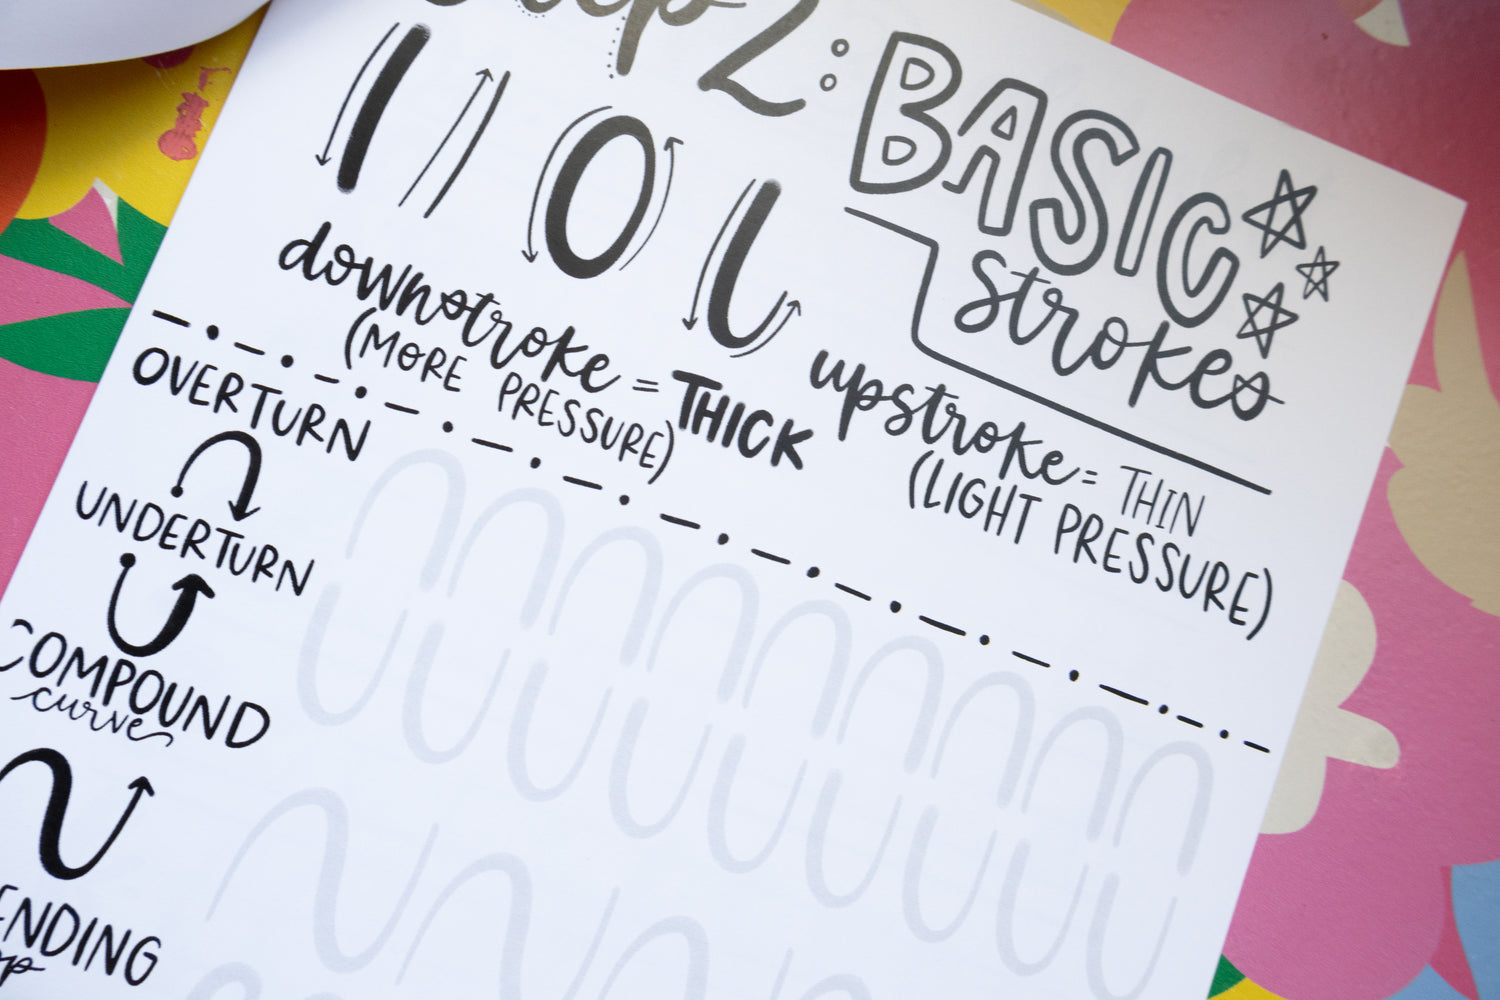 Step 2: BASIC
strokes
downstroke = THICK
(MORE PRESSURE)
upstroke = THIN
(LIGHT PRESSURE)
OVERTURN
UNDERTURN
COMPOUND
curve